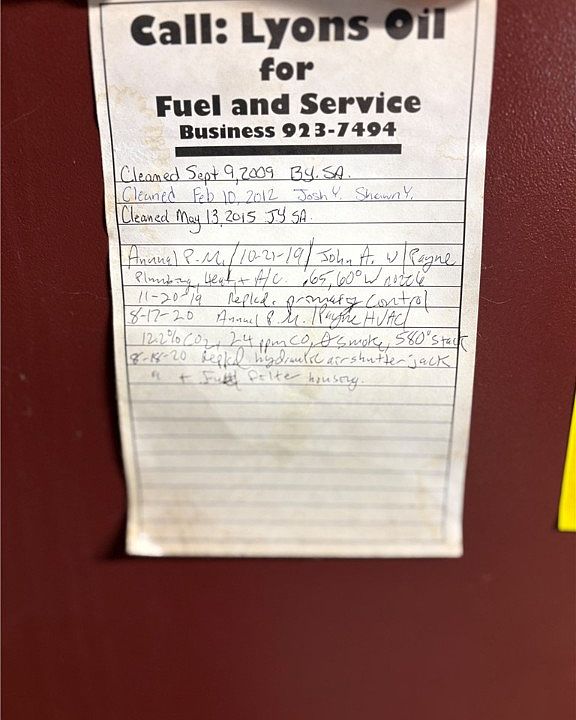 Call: Lyons Oil
for
Fuel and Service
Business 923-7494
Cleaned Sept 9, 2009 By. SA.
Cleaned Feb 10, 2012 Josh Y. Shawn Y.
Cleaned May 13, 2015 JY SA.
Annual P.M./10-21-19/ John A. W/ Payne
Plumbing, Heat, + A/C. .65, 60° W nozzle
11-20-19 Replcd. primary control
8-17-20 Annual P.M./Payne HVAC/
12.2% CO2, 24 ppm CO, 0 smoke, 580° stack
8-18-20 Replcd hydraulic air shutter jack
" + Fuel filter housing.